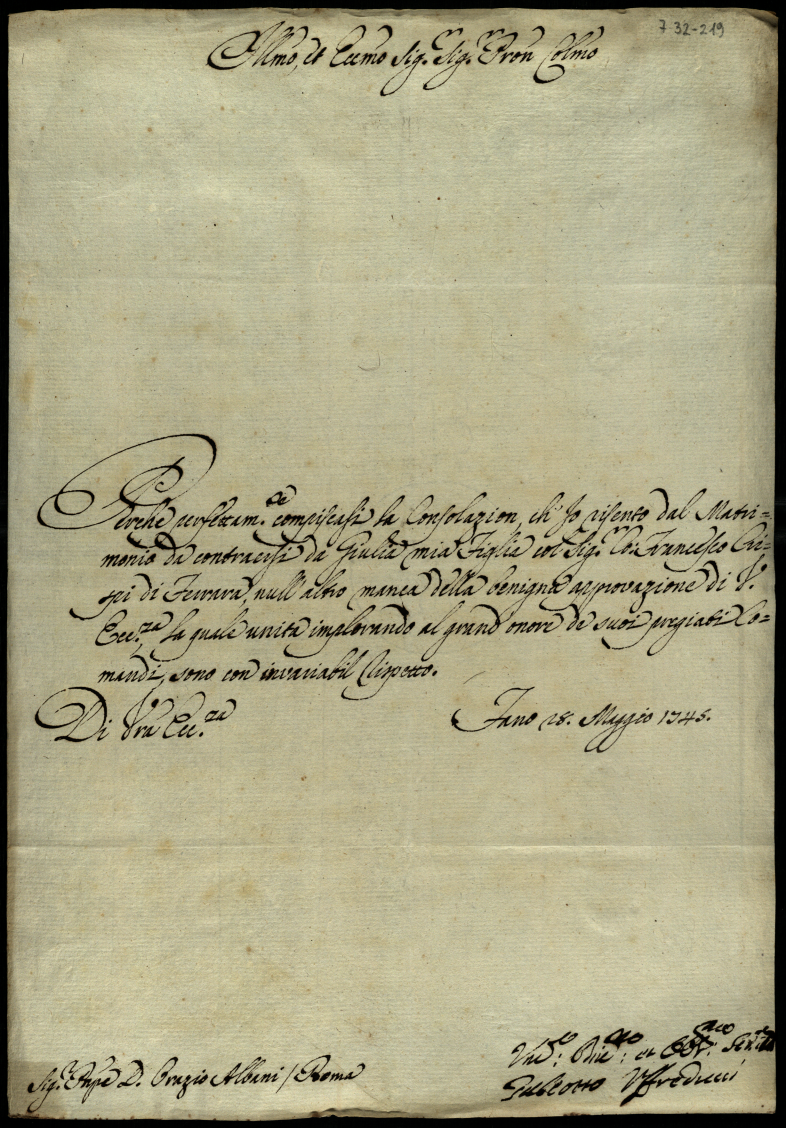 7 32-219
Illmo, et Eccmo Sig.r Sig.r Pron Colmo
Perche perfettam.te compiscasi la Consolazion, ch' Io risento dal Matri=
monio da contraersi da Giulia mia Figlia col Sig.r Co: Francesco Cri=
spi di Ferrara, null'altro manca della benigna approvazione di V.
Ecc.za, la quale unita implorando al grand onore de suoi pregiati Co=
mandi, sono con invariabil Rispetto.
Di Vra Ecc.za
Fano 28. Maggio 1745.
Sig.r Pnpe D. Orazio Albani / Roma
Galeotto Uffreducci